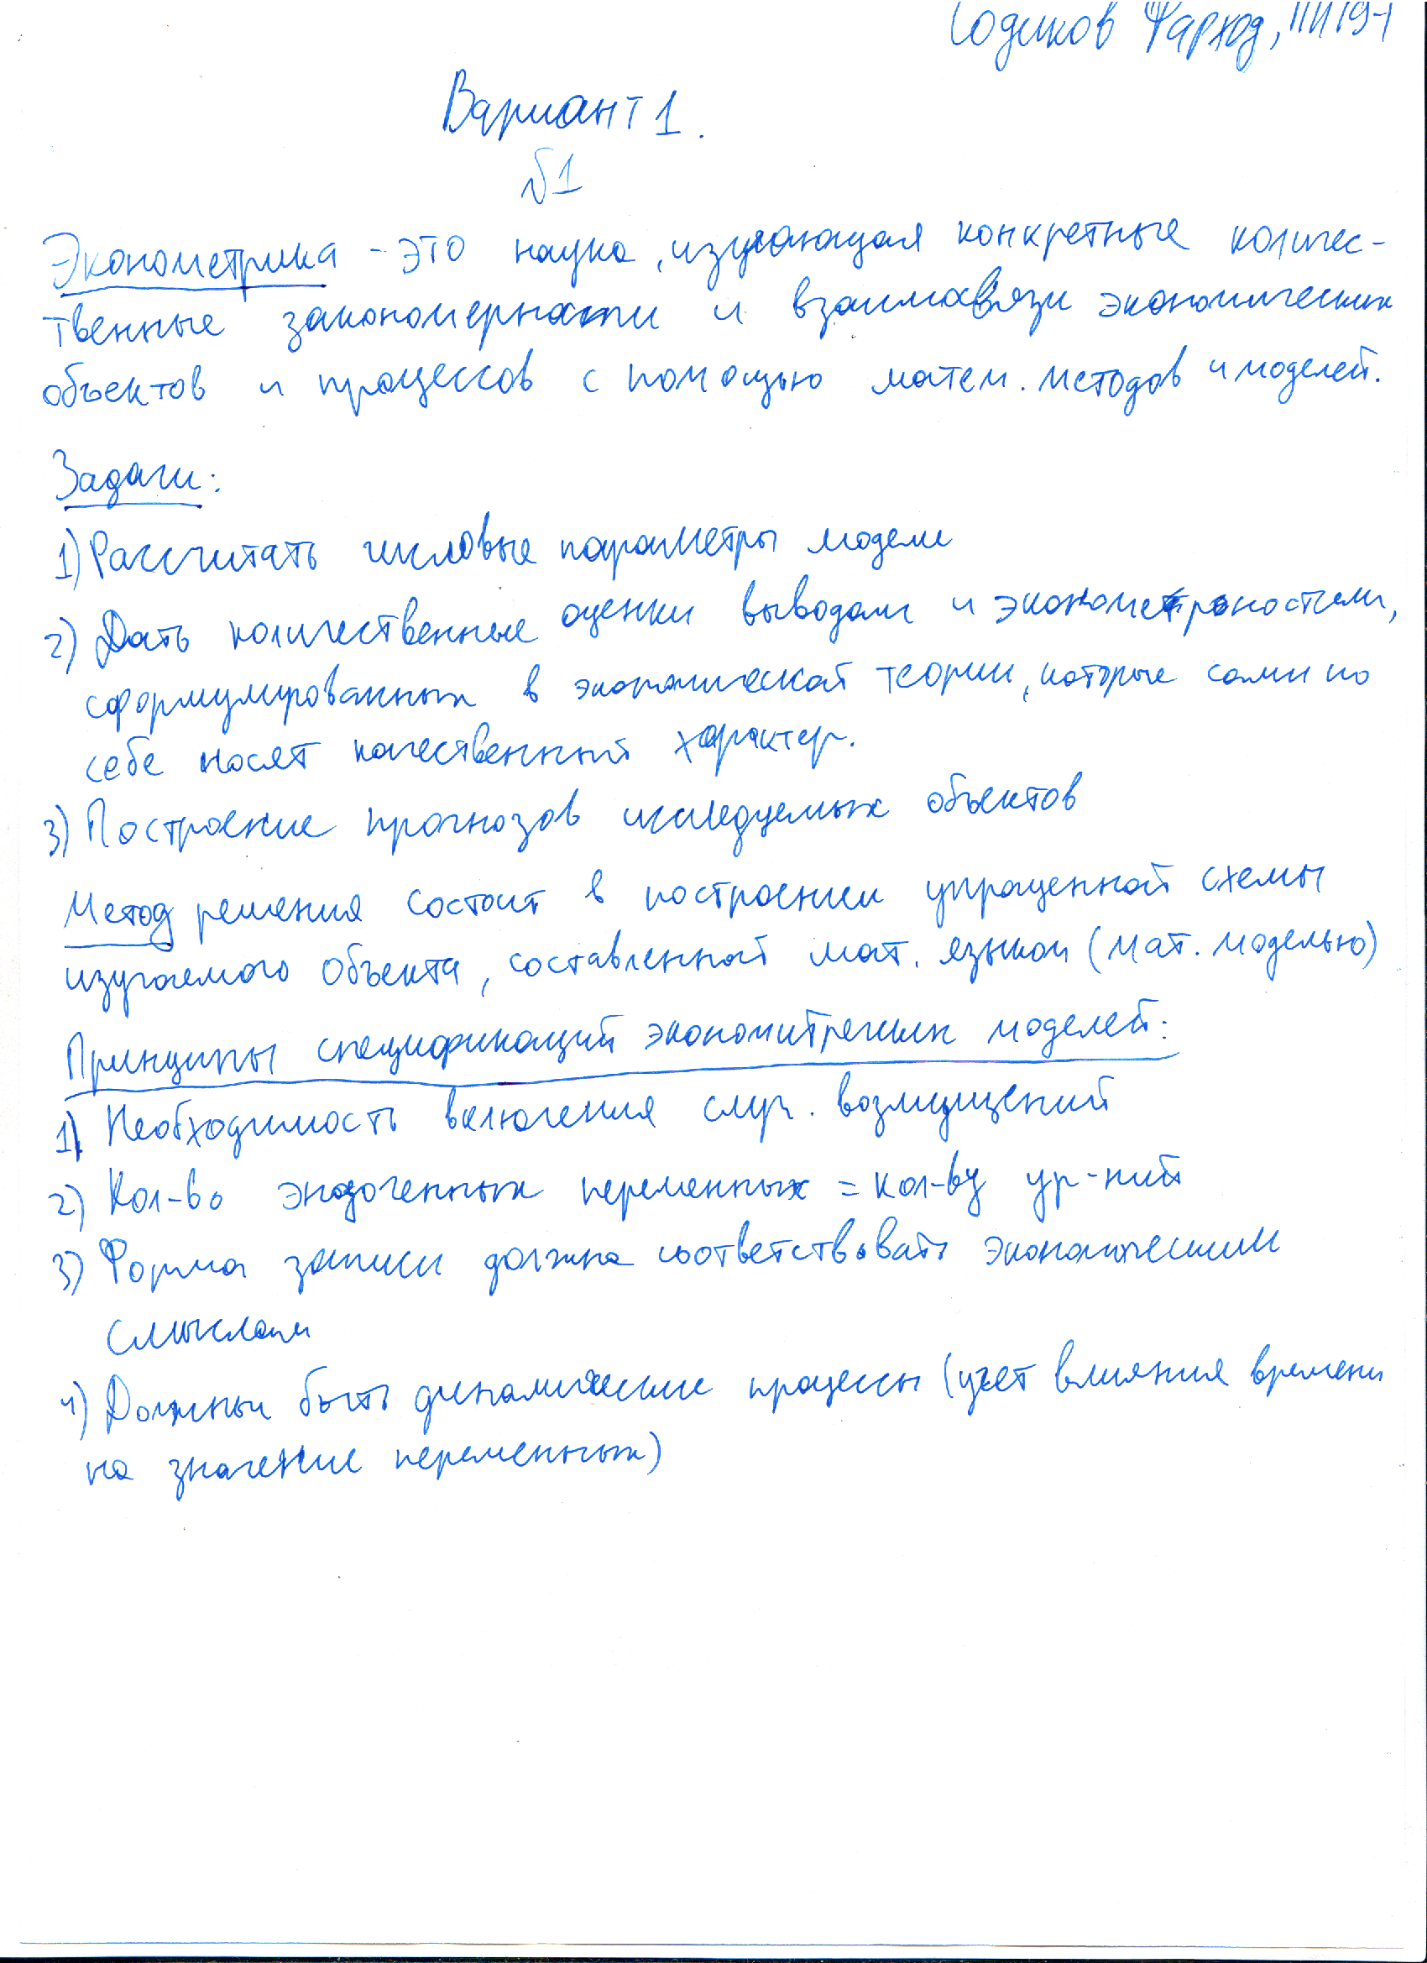 Содиков Фарход,
Вариант 1.
№1
Эконометрика - это наука, изучающая конкретные количес-
твенные закономерности и взаимосвязи экономических
объектов и процессов с помощью матем. методов и моделей.
Задачи:
1) Рассчитать числовые параметры модели
2) Дать количественные оценки выводам и
сформулированных в экономической теории, которые сами по
себе носят качественный характер.
3) Построение прогнозов исследуемых объектов
Метод решения состоит в построении упращенной схемы
изучаемого объекта, составленной мат. языком (мат. моделью)
Принципы спецификаций эконометречких моделей:
1) Необходимость включения случ. возмущений
2) Кол-во эндогенных переменных = кол-ву ур-ний
3) Форма записи должна соответствовать экономическим
смыслам
4) Должны быть динамические процессы (учет влияния времени
на значение переменных)